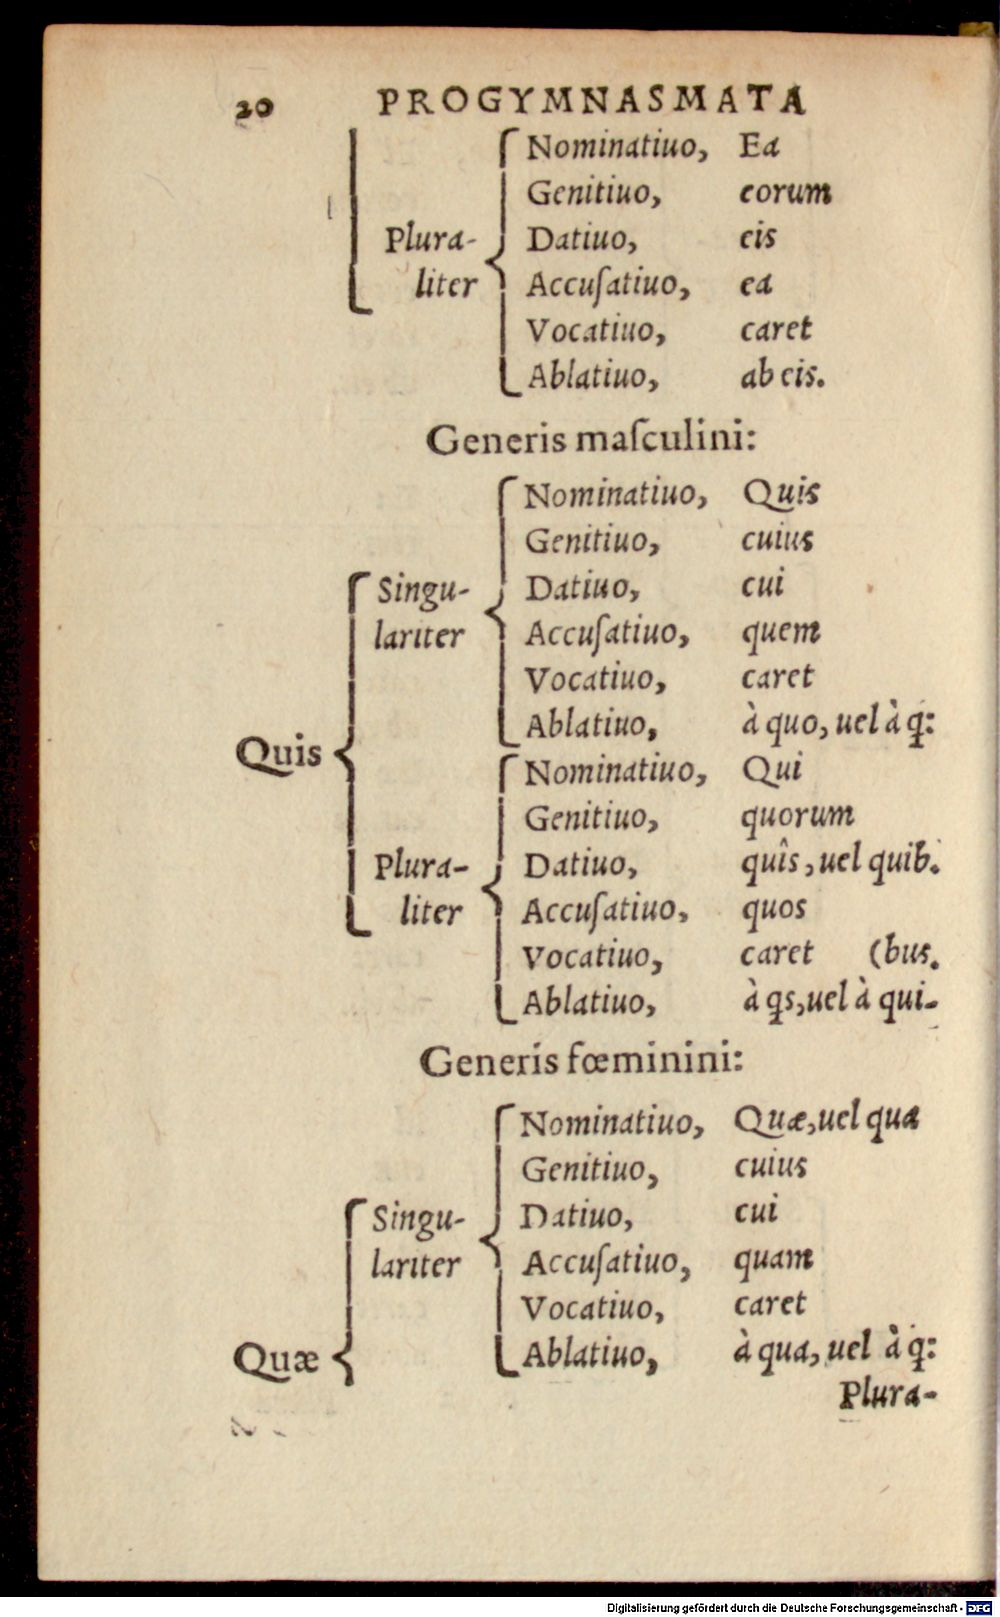 20 PROGYMNASMATA
Nominatiuo, Ea
Genitiuo, eorum
Plura- Datiuo, eis
liter Accuſatiuo, ea
Vocatiuo, caret
Ablatiuo, ab eis.
Generis maſculini:
Nominatiuo, Quis
Genitiuo, cuius
Singu- Datiuo, cui
lariter Accuſatiuo, quem
Vocatiuo, caret
Ablatiuo, à quo, uel à q̃:
Quis
Nominatiuo, Qui
Genitiuo, quorum
Plura- Datiuo, quîs, uel quib.
liter Accuſatiuo, quos
Vocatiuo, caret (bus.
Ablatiuo, à q̃s, uel à qui-
Generis fœminini:
Nominatiuo, Quæ, uel qua
Genitiuo, cuius
Singu- Datiuo, cui
lariter Accuſatiuo, quam
Vocatiuo, caret
Quæ Ablatiuo, à qua, uel à q̃:
Plura-
Digitalisierung gefördert durch die Deutsche Forschungsgemeinschaft - DFG